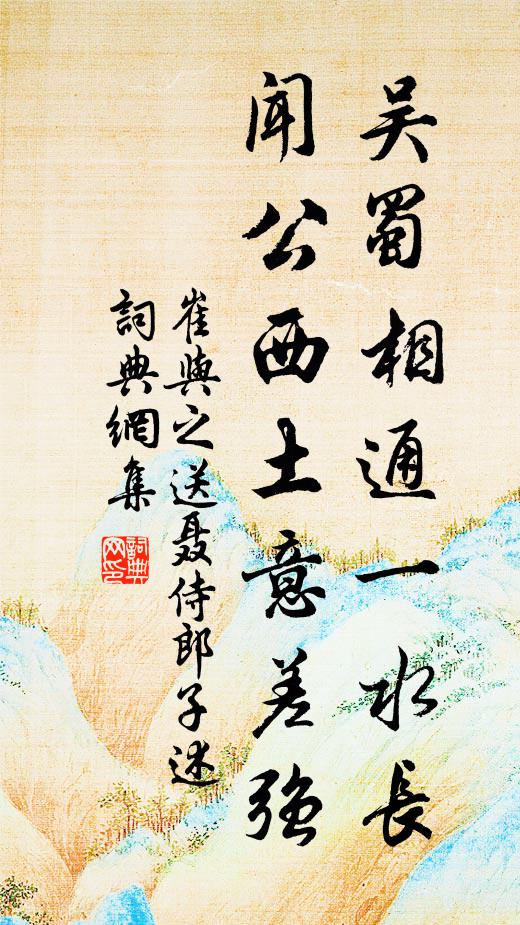 吴蜀相通一水長
闻公西土意差强
崔與之送聂侍郎子述
詞典網集
詞典
网印